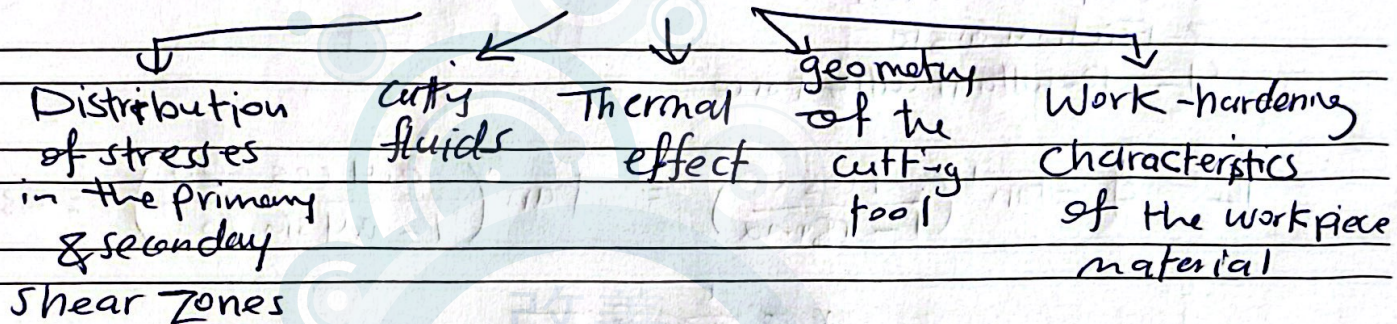 Distribution
of stresses
in the primary
& seconday
shear zones
cuttig
fluids
Thermal
effect
geometry
of the
cutting
tool
Work-hardening
Characteristics
of the workpiece
material